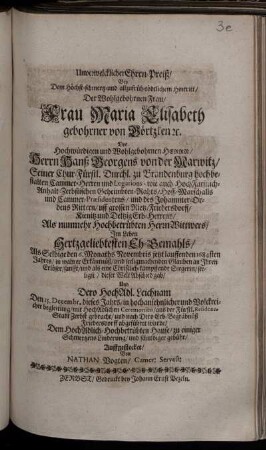 3e
Unverwelcklicher Ehren-Preiß/
Bey
Dem Höchst-schmertz- und allzufrüh-tödtlichem Hintritt/
Der Wohlgebohrnen Frau/
Frau Maria Elisabeth
gebohrner von Görtzken ꝛc.
Des
Hochwürdigen und Wohlgebohrnen Herren
Herrn Hanß Georgens von der Marwitz/
Seiner Chur-Fürstl. Durchl. zu Brandenburg hochbe-
stalten Cammer-Herren und Legations- wie auch Hoch-Fürstlich-
Anhalt-Zerbstischen Geheimbden-Raths/ Hoff-Marschalls
und Cammer-Præsidentens/ und des Johanniter-Or-
dens Rittern/ auff grossen Rietz/ Friedersdorff/
und Erb-Herren/
Als nunmehr Hochbetrübten Herrn Wittwers/
Im Leben
Hertzgeliebtesten Eh-Gemahls/
Als Selbige den Monaths Novembris jetzt lauffenden
Jahres/ in wahrer Erkäntnüß/ und festgemachten Glauben an Ihren
Erlöser, sanfft/ und als eine Christlich-kämpfende Siegerin/ see-
ligst/ dieser Welt Abschied gab/
Und
Dero HochAdl. Leichnam
Den 15. Decembr. dieses Jahrs/ in hochansehnlicher und Volckrei-
cher begleitung/ mit HochAdlichen Ceremonien/ aus der Fürstl. Residenz-
Stadt Zerbst gebracht/ und nach Dero Erb-Begräbnüß
Friedersdorff abgeführet wurde/
Dem HochAdlich-Hochbetrübten Hause/ zu einiger
Schmertzens Linderung/ und schuldiger gebühr/
Auffgestecket/
Von
NATHAN Vogten/ Camer: Servest:
ZERBST/ Gedruckt bey Johann Ernst Bezeln.